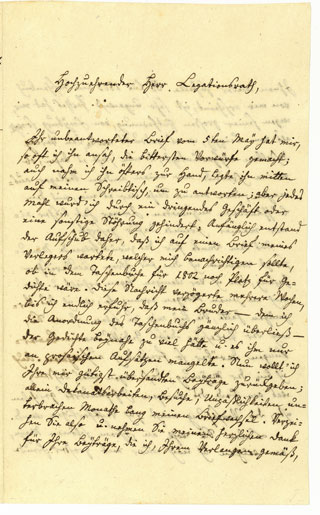 Hochzuehrender Herr Legationsrath,
Ihr unbeantworteter Brief vom 5ten May hat mir,
so oft ich ihn ansah, die bittersten Vorwürfe gemacht;
auch nahm ich ihn öfters zur Hand, legte ihn mitten
auf meinen Schreibtisch, um zu antworten; aber jedes
Mahl wurd' ich durch ein dringendes Geschäft oder
eine sonstige Störung gehindert. Anfänglich entstand
der Aufschub daher, daß ich auf einen Brief meines
Verlegers wartete, welcher mich benachrichtigen sollte,
ob in dem Taschenbuche für 1802 noch Platz für Ge-
dichte wäre. Diese Nachricht verzögerte mehrere Wochen,
bis ich endlich erfuhr, daß mein Bruder — dem ich
die Anordnung des Taschenbuchs gänzlich überließ —
der Gedichte beynahe zu viel hätte u. es ihm nur
an prosaischen Aufsätzen mangelte. Nun wollt' ich
Ihnen die mir gütigst übersandten Beyträge zurückgeben;
allein Arbeiten, Besuche, Unpäßlichkeiten un-
terbrachen Monathe lang meinen Briefwechsel. Verzei-
hen Sie also u. nehmen Sie meinen herzlichen Dank
für Ihre Beyträge, die ich, Ihrem Verlangen gemäß,